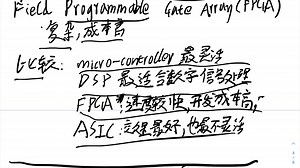 Field Programmable Gate Array(FPGA)
复杂,成本高
比较: micro-controller 最灵活
DSP 最适合数字信号处理
FPGA 速度较快,开发成本高,
ASIC:效果最好,也最不灵活